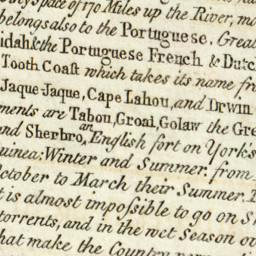 Space of 170 Miles up the River, mo
belongs also to the Portuguese. Great
idah & the Portuguese French & Dutc
Tooth Coaſt which takes its name fr
Jaque-Jaque, Cape Lahou, and Drwin
ments are Tabou, Groai, Golaw the Gre
and Sherbro, an English fort on York's
uinea: Winter and Summer. from
October to March their Summer.
t is almost impoſsible to go on S
torrents, and in the wet Season ov
hat make the Country